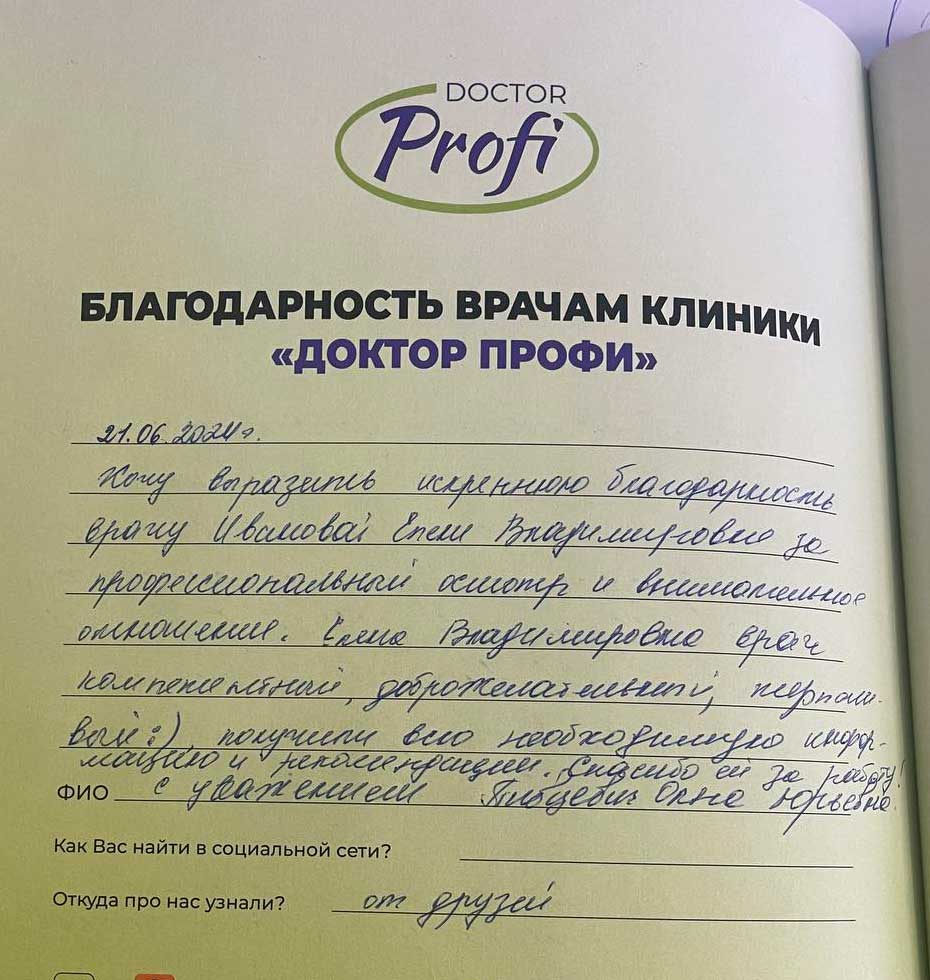 DOCTOR
Profi
БЛАГОДАРНОСТЬ ВРАЧАМ КЛИНИКИ
«ДОКТОР ПРОФИ»
21.06.2024г.
Хочу выразить искреннюю благодарность
врачу Ивановой Елене Владимировне за
профессиональный осмотр и внимательное
отношение. Елена Владимировна врач
компетентный, доброжелательный, терпели-
вый :), получили всю необходимую инфор-
мацию и рекомендации. Спасибо ей за работу!
ФИО с уважением Юрьевна
Как Вас найти в социальной сети?
Откуда про нас узнали? от друзей